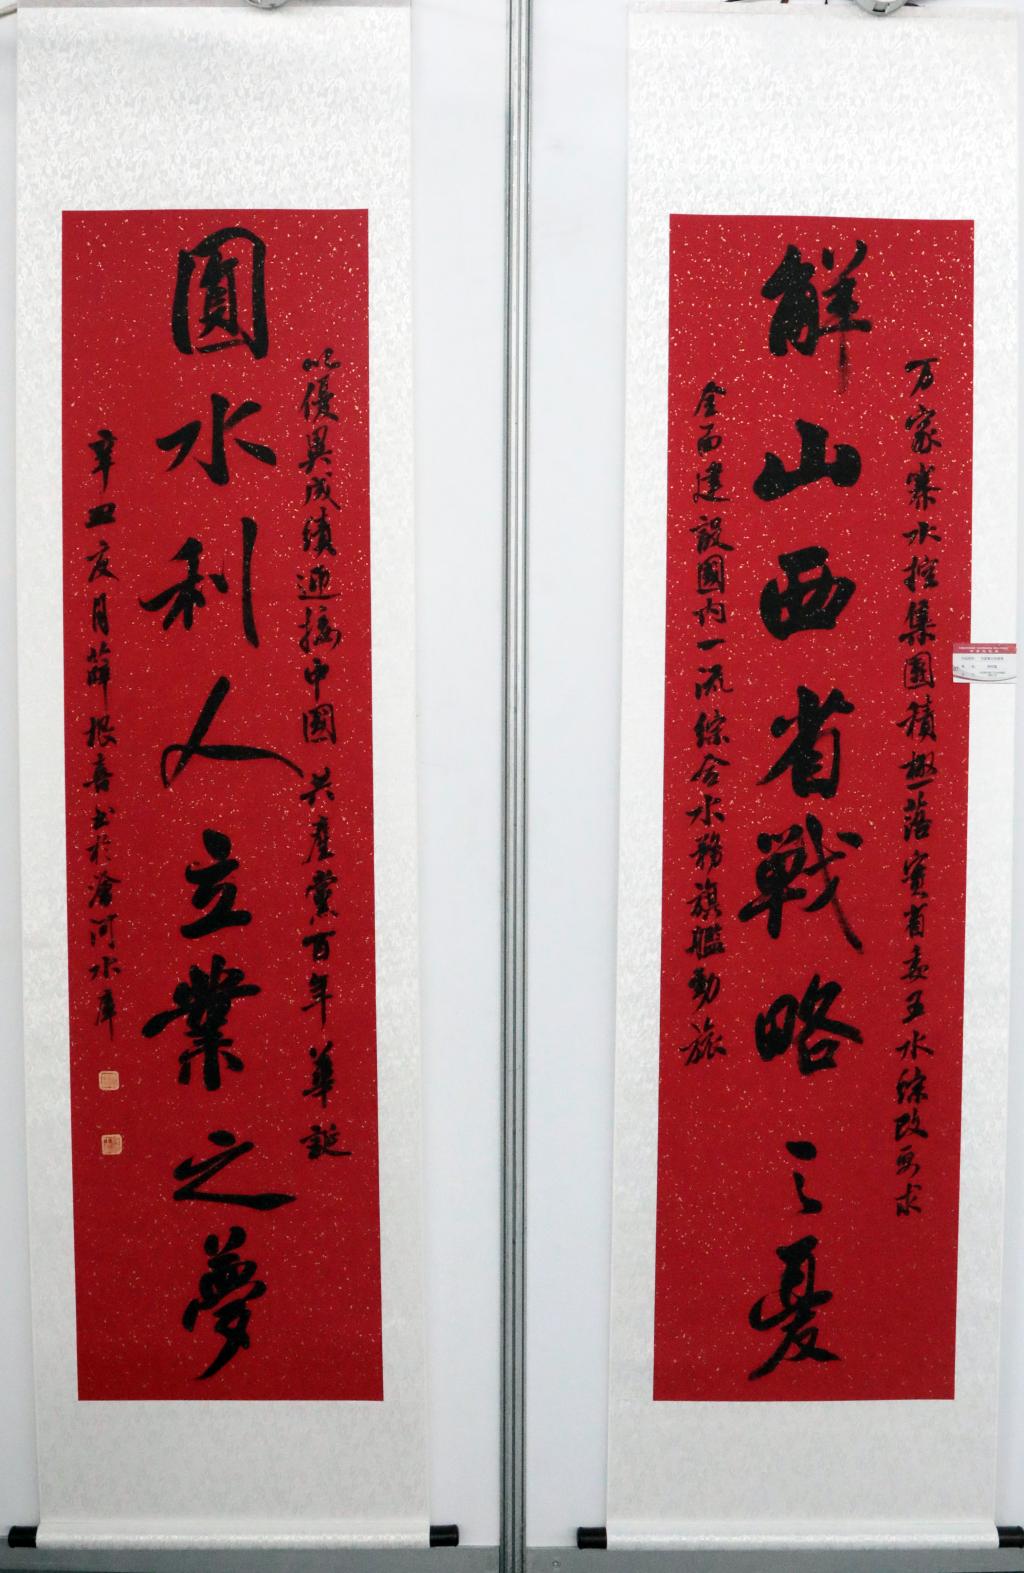 万家寨水控集团積極落實省委五水综改要求
解山西省戰略之憂
全面建設國内一流综合水務旗艦勁旅
以優異成績迎接中國共產黨百年華誕
圓水利人立業之夢
辛丑夏月薛根喜書於滄河水庫